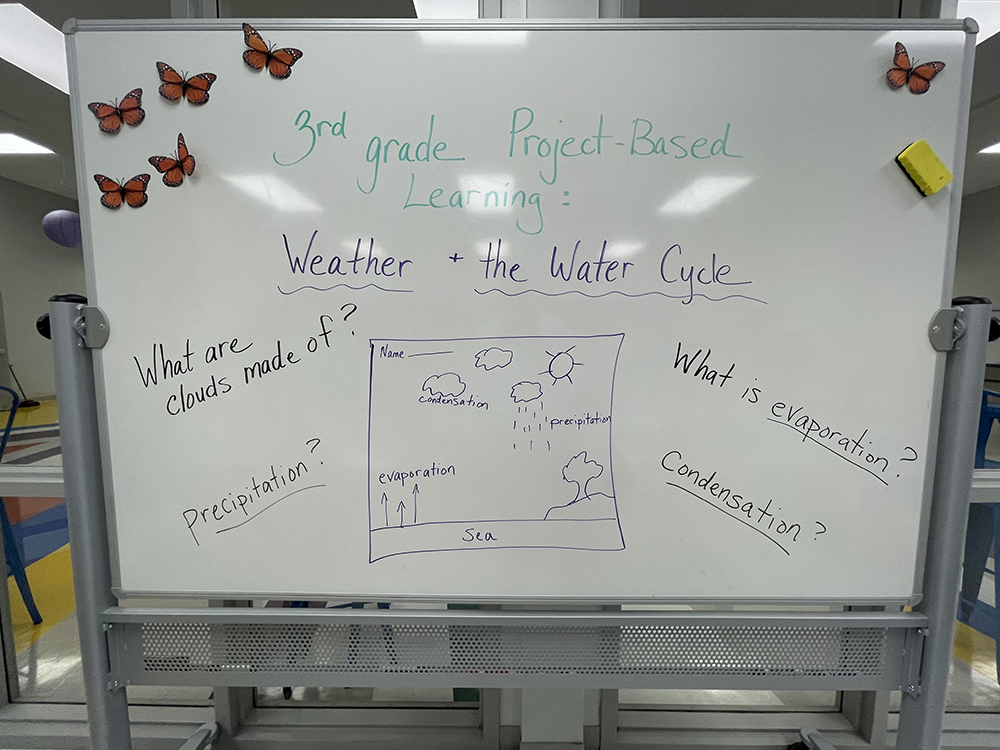 3rd grade Project-Based
Learning:
Weather + the Water Cycle
What are
clouds made of?
Precipitation?
Name
condensation
precipitation
evaporation
Sea
What is evaporation?
Condensation?